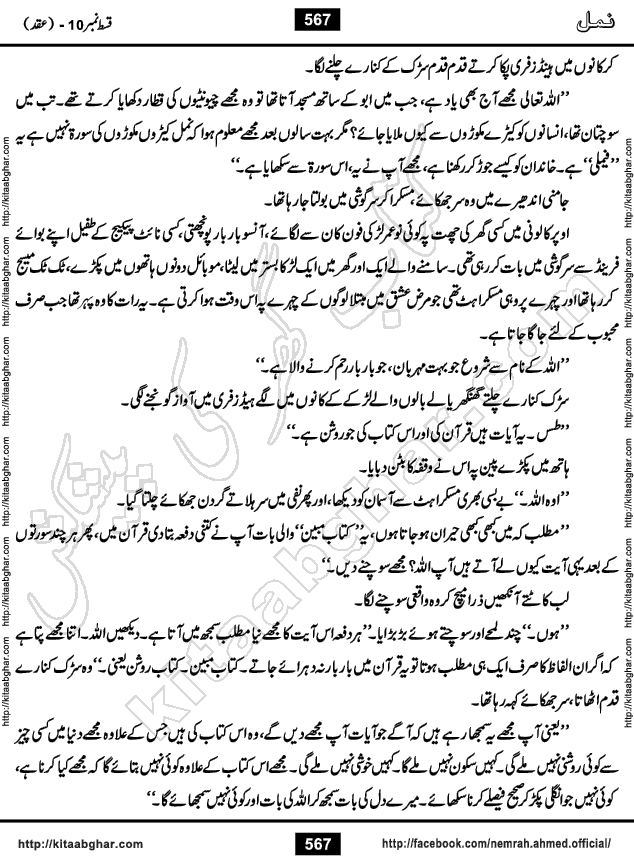 نمل
567
قسط نمبر 10 - (عقد)
کر کانوں میں ہینڈز فری پکا کرتے قدم قدم سڑک کے کنارے چلنے لگا۔
’’اللہ تعالی مجھے آج بھی یاد ہے، جب میں ابو کے ساتھ مسجد آتا تھا تو وہ مجھے چیونٹیوں کی قطار دکھایا کرتے تھے۔ تب میں
سوچتا تھا، انسانوں کو کیڑے مکوڑوں سے کیوں ملایا جائے؟ مگر بہت سالوں بعد مجھے معلوم ہوا کہ نمل کیڑوں مکوڑوں کی سورۃ نہیں ہے یہ
’’فیملی‘‘ ہے۔ خاندان کو کیسے جوڑ کر رکھنا ہے، مجھے آپ نے یہ، اس سورۃ سے سکھایا ہے۔‘‘
جامنی اندھیرے میں وہ سر جھکائے، مسکرا کر سرگوشی میں بولتا جا رہا تھا۔
اوپر کالونی میں کسی گھر کی چھت پہ کوئی نو عمر لڑکی فون کان سے لگائے، آنسو بار بار پونچھتی، کسی نائٹ پیکیج کے طفیل اپنے بوائے
فرینڈ سے سرگوشی میں بات کر رہی تھی۔ سامنے والے ایک اور گھر میں ایک لڑکا بستر میں لیٹا، موبائل دونوں ہاتھوں میں پکڑے، ٹک ٹک میسج
کر رہا تھا اور چہرے پر وہی مسکراہٹ تھی جو مرض عشق میں مبتلا لوگوں کے چہرے پہ اس وقت ہوا کرتی ہے۔ یہ رات کا وہ پہر تھا جب صرف
محبوب کے لئے جاگا جاتا ہے۔
’’اللہ کے نام سے شروع جو بہت مہربان، جو بار بار رحم کرنے والا ہے۔‘‘
سڑک کنارے چلتے گھنگھریالے بالوں والے لڑکے کے کانوں میں لگے ہیڈز فری میں آواز گونجنے لگی۔
’’طس۔ یہ آیات ہیں قرآن کی اور اس کتاب کی جو روشن ہے۔‘‘
ہاتھ میں پکڑے پین پہ اس نے وقفہ کا بٹن دبایا۔
’’اوہ اللہ۔‘‘ بے بسی بھری مسکراہٹ سے آسمان کو دیکھا، اور پھر نفی میں سر ہلاتے گردن جھکائے چلتا گیا۔
’’مطلب کہ میں کبھی کبھی حیران ہو جاتا ہوں، یہ ’’کتاب مبین‘‘ والی بات آپ نے کتنی دفعہ بتا دی قرآن میں، پھر ہر چند سورتوں
کے بعد یہی آیت کیوں لے آتے ہیں آپ اللہ؟ مجھے سوچنے دیں۔‘‘
لب کاٹتے آنکھیں ذرا میچ کر وہ واقعی سوچنے لگا۔
’’ہوں۔‘‘ چند لمحے اور سوچتے ہوئے بڑبڑایا۔ ’’ہر دفعہ اس آیت کا مجھے نیا مطلب سمجھ میں آتا ہے۔ دیکھیں اللہ۔ اتنا مجھے پتا ہے
کہ اگر ان الفاظ کا صرف ایک ہی مطلب ہوتا تو یہ قرآن میں بار بار نہ دہرائے جاتے۔ کتاب مبین۔ کتاب روشن یعنی۔‘‘ وہ سڑک کنارے
قدم اٹھاتا، سر جھکائے کہہ رہا تھا۔
’’یعنی آپ مجھے یہ سمجھا رہے ہیں کہ آگے جو آیات آپ مجھے دیں گے، وہ اس کتاب کی ہیں جس کے علاوہ مجھے دنیا میں کسی چیز
سے کوئی روشنی نہیں ملے گی۔ کہیں سکون نہیں ملے گا۔ کہیں خوشی نہیں ملے گی۔ مجھے اس کتاب کے علاوہ کوئی نہیں بتائے گا کہ مجھے کیا کرنا ہے،
کوئی نہیں جو انگلی پکڑ کر صحیح فیصلے کرنا سکھائے۔ میرے دل کی بات سمجھ کر اللہ کی بات اور کوئی نہیں سمجھائے گا۔‘‘
http://kitaabghar.com
567
http://facebook.com/nemrah.ahmed.official/
http://kitaabghar.com
http://kitaabghar.com
http://kitaabghar.com
http://kitaabghar.com
http://kitaabghar.com
http://kitaabghar.com
http://kitaabghar.com
http://kitaabghar.com
http://kitaabghar.com
http://kitaabghar.com
http://kitaabghar.com
http://kitaabghar.com
کتاب گھر کی پیشکش
kitaabghar.com